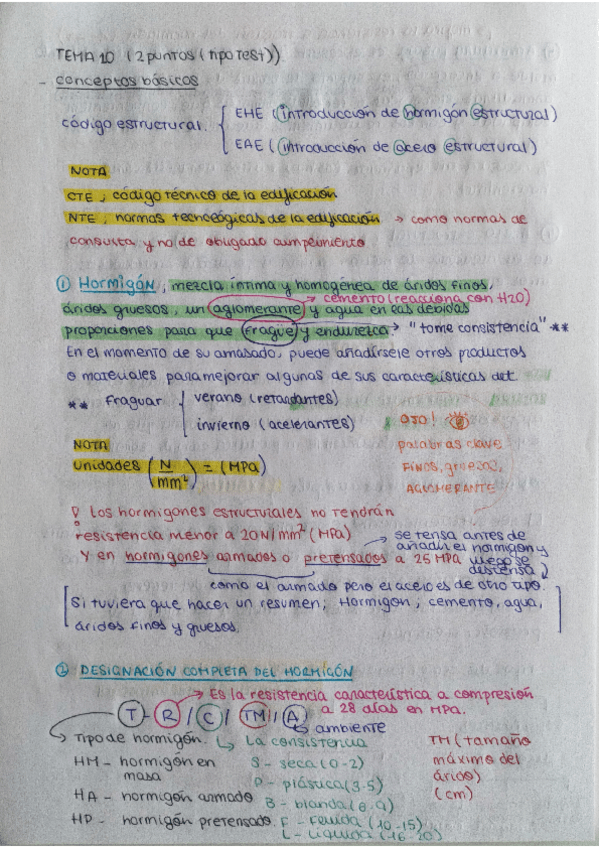 TEMA 10 (2 puntos (tipo Test)).
- conceptos básicos
código estructural.
EHE (introducción de hormigón estructural)
EAE (introducción de acero estructural)
NOTA
CTE, código técnico de la edificación
NTE, normas tecnológicas de la edificación → como normas de
consulta y no de obligado cumplimiento
① Hormigón, mezcla íntima y homogénea de áridos finos,
→ cemento (reacciona con H2O)
áridos gruesos, un aglomerante y agua en las debidas
proporciones para que frague y endurezca → "tome consistencia" **
En el momento de su amasado, puede añadírsele otros productos
o materiales para mejorar algunas de sus características del
** fraguar
verano (retardantes)
invierno (acelerantes)
OJO!
palabras clave
FINOS, gruesos,
AGLOMERANTE
NOTA
unidades (N/mm²) = (MPa)
los hormigones estructurales no tendrán
resistencia menor a 20N/mm² (MPa)
→ se tensa antes de
añadir el hormigón y
luego se
destensa
Y en hormigones armados o pretensados a 25 MPa
como el armado pero el acero es de otro tipo.
[Si tuviera que hacer un resumen; Hormigón; cemento, agua,
áridos finos y gruesos.]
② DESIGNACIÓN COMPLETA DEL HORMIGÓN
→ Es la resistencia característica a compresión
a 28 días en MPa.
T - R / C / TM / A
ambiente
Tipo de hormigón.
HM - hormigón en
masa
HA - hormigón armado
HP - hormigón pretensado.
La consistencia
S - seca (0-2)
P - plástica (3-5)
B - blanda (6-9)
F - Fluida (10-15)
L - Líquida (16-20)
TM (tamaño
máximo del
árido)
(cm)